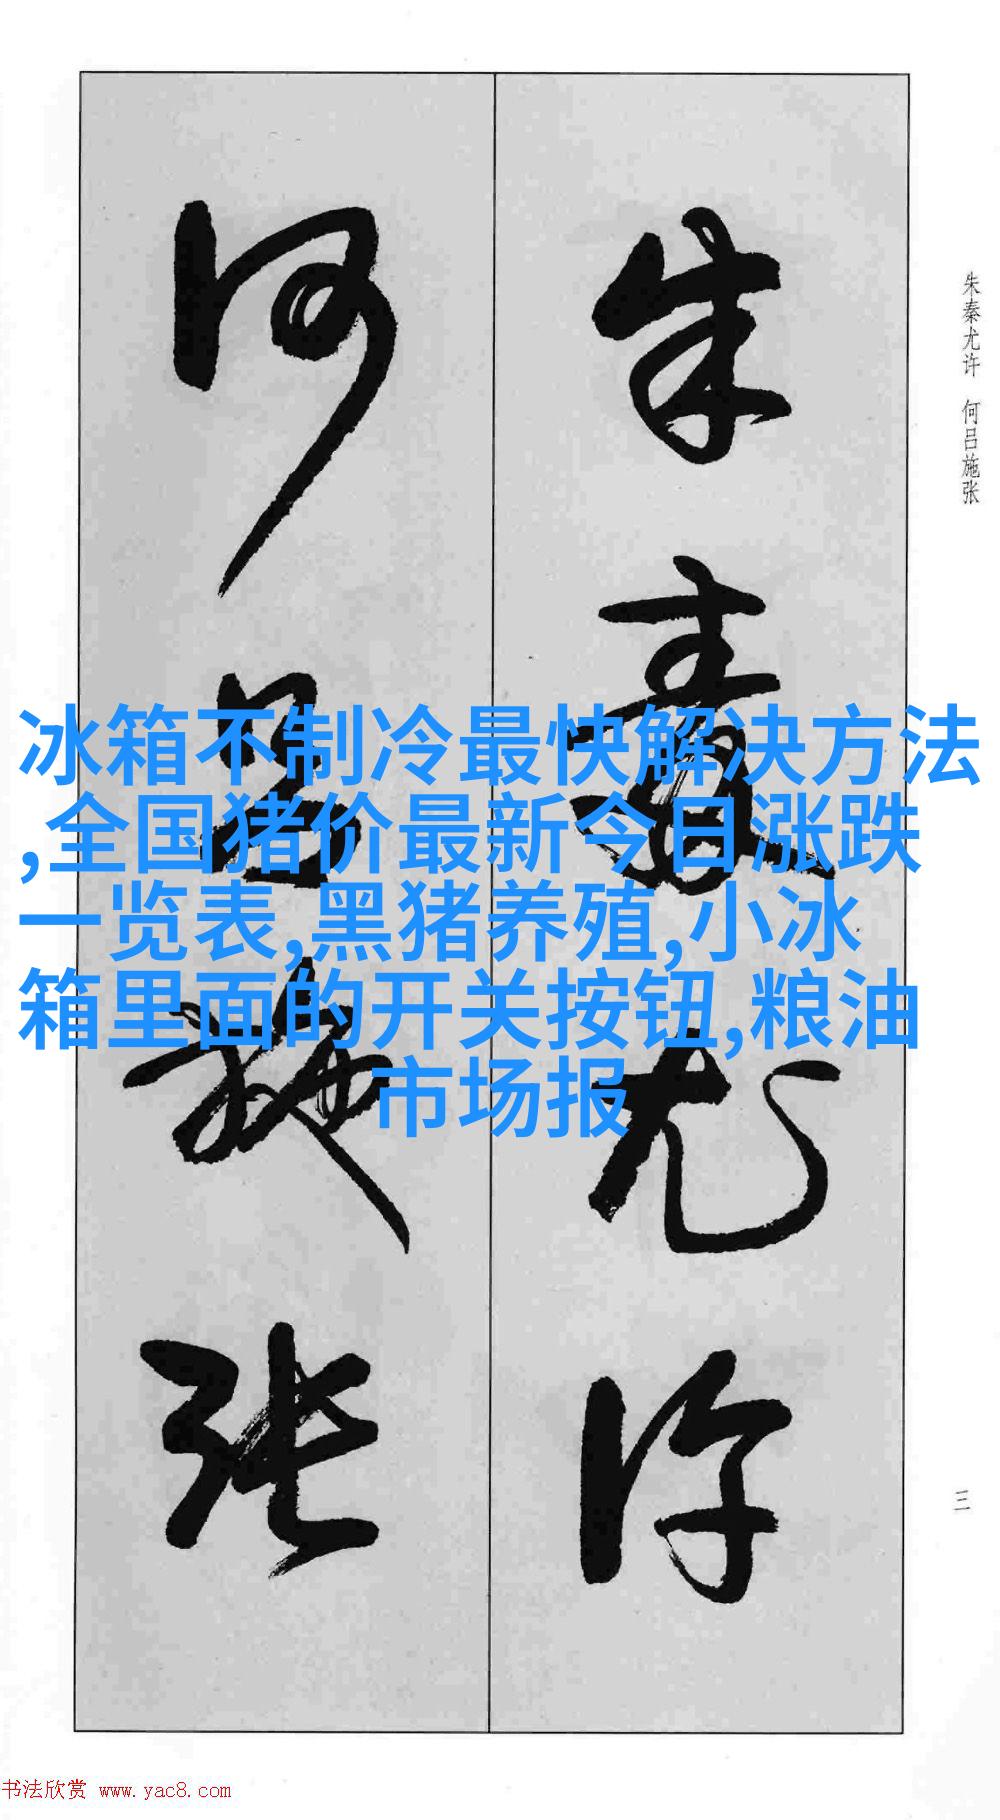 朱秦尤许 何吕施张
朱秦尤许
何吕施张
冰箱不制冷最快解决方法
,全国猪价最新今日涨跌
一览表,黑猪养殖,小冰
箱里面的开关按钮,粮油
市场报
三
书法欣赏 www.yac8.com